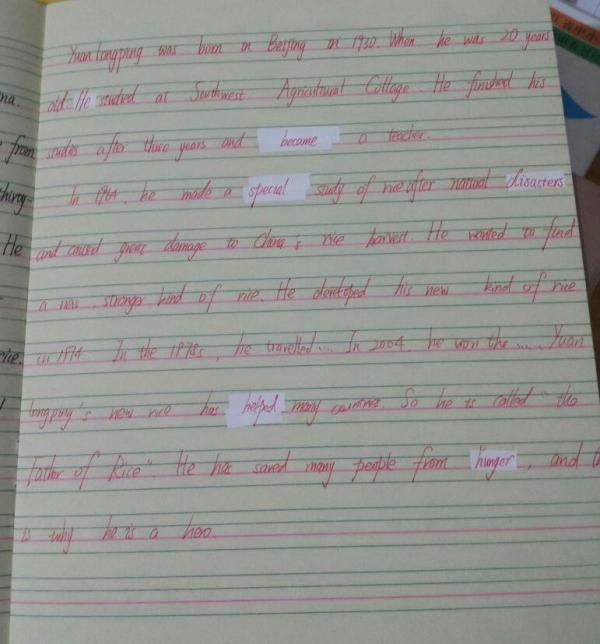 Yuan longping was born in Beijing in 1930. When he was 20 years
old. He studied at Southwest Agricultural Collage. He finished his
studies after three years and became a teacher.
In 1964, he made a special study of rice after natural disasters
and caused great damage to China's rice harvest. He wanted to find
a new, stronger kind of rice. He developed his new kind of rice
in 1974. In the 1978s, he travelled... In 2004, he won the .... Yuan
longping's new rice has helped many countries. So he is called "the
Father of Rice". He has saved many people from hunger, and
is why he is a hero.
na.
from
thing-
He
rice.